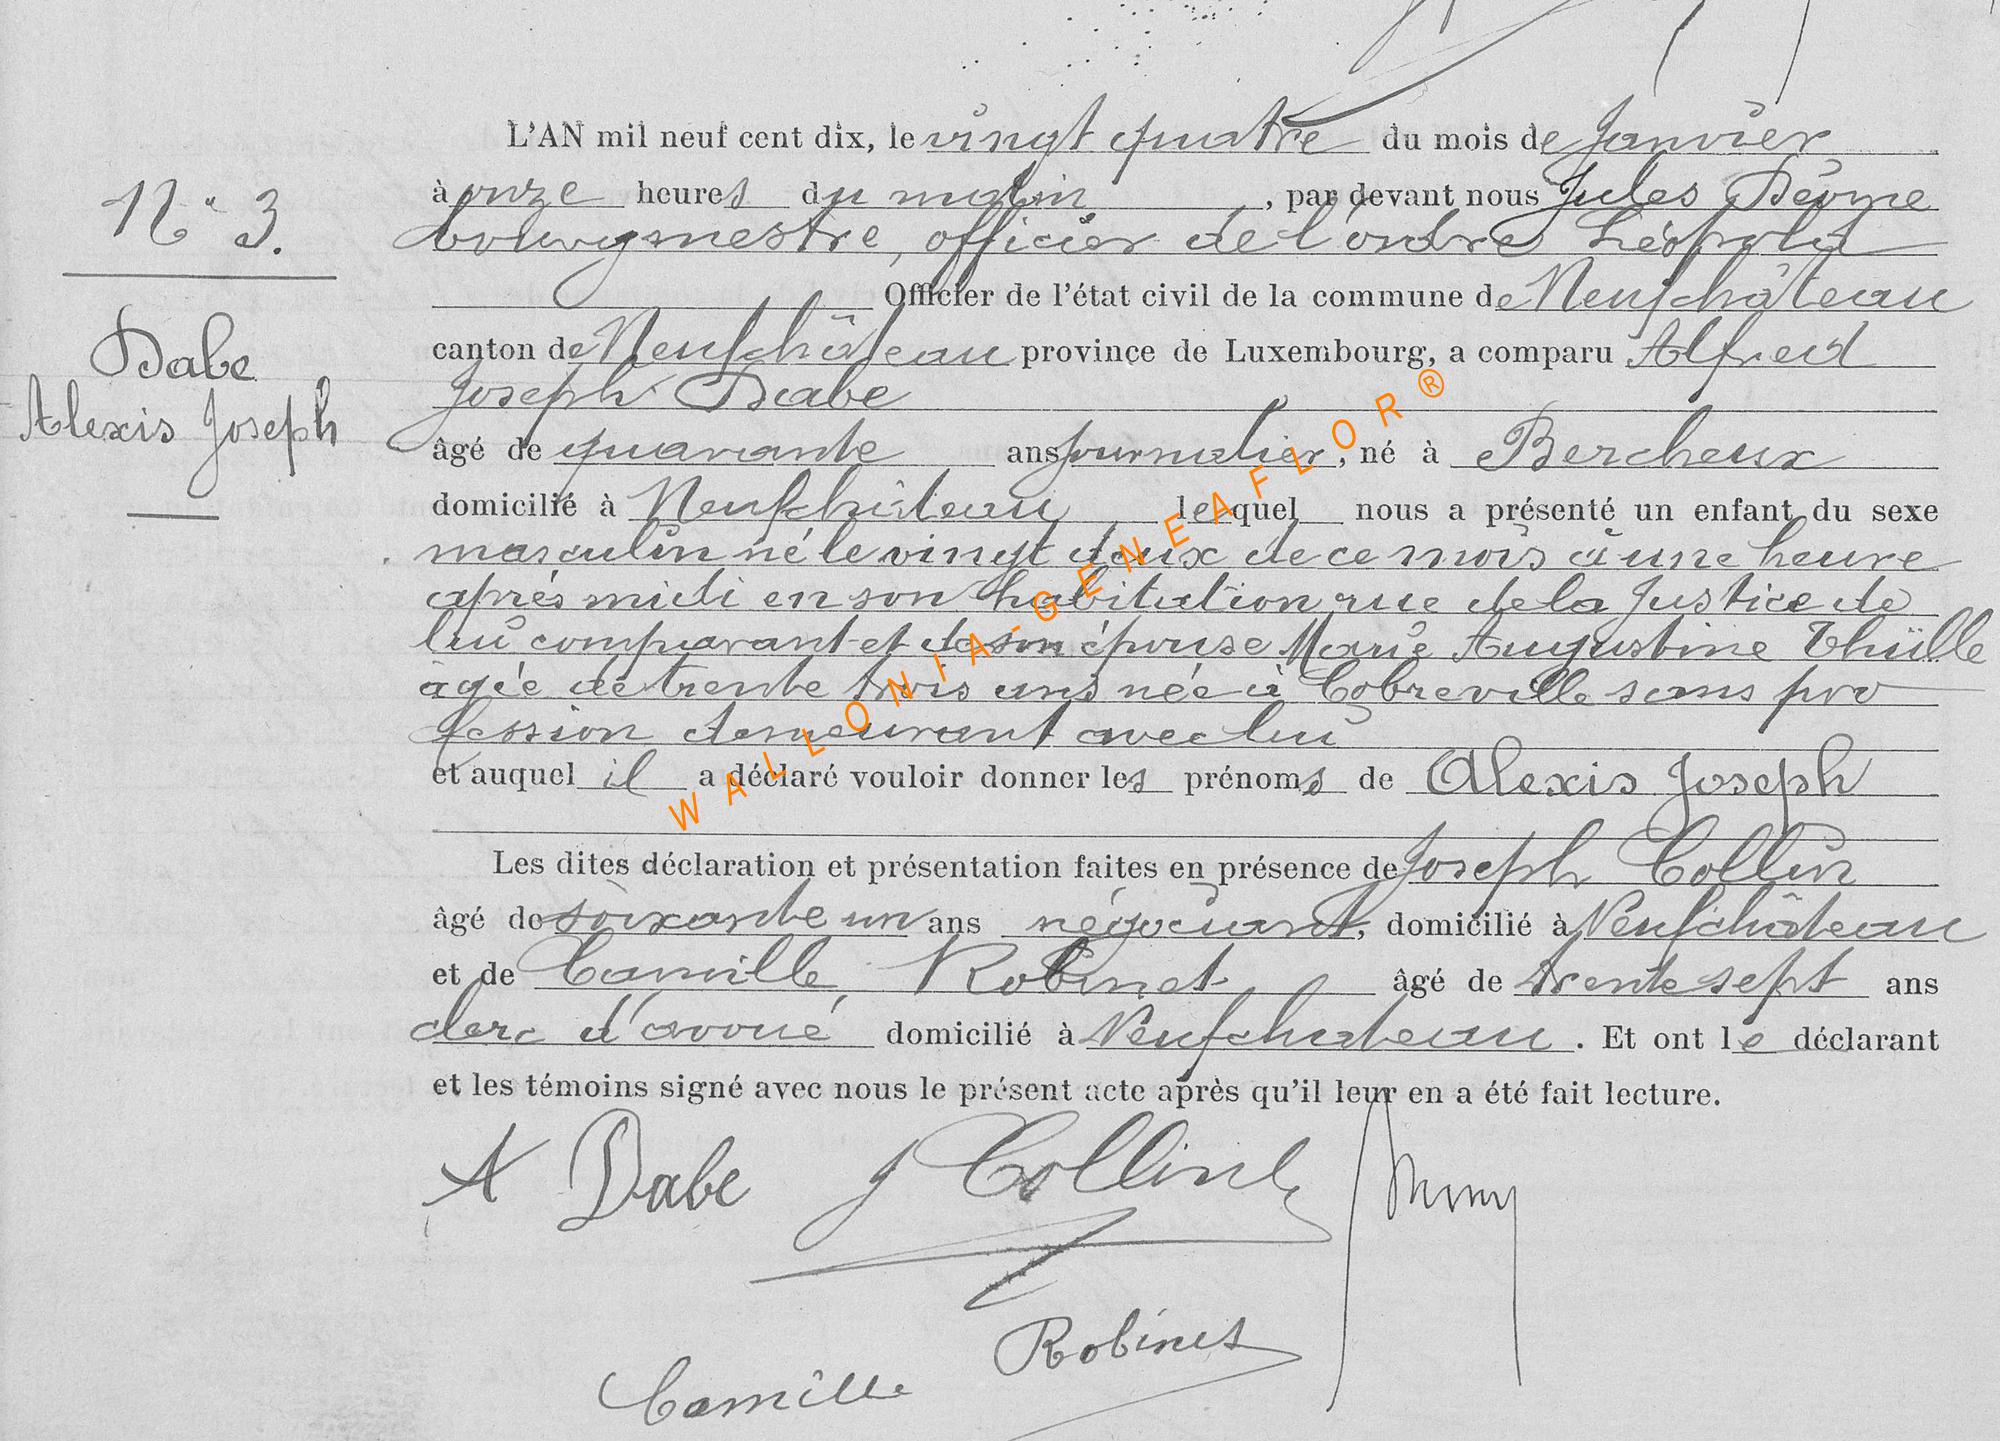 N° 3.
Dabe
Alexis Joseph
L'AN mil neuf cent dix, le vingt quatre du mois de Janvier
à onze heures du matin, par devant nous Jules
bourgmestre, officier de l'ordre Léopold
Officier de l'état civil de la commune de Neufchâteau
canton de Neufchâteau province de Luxembourg, a comparu Alfred
Joseph Dabe
âgé de quarante ans journalier, né à Bercheux
domicilié à Neufchâteau lequel nous a présenté un enfant du sexe
masculin né le vingt deux de ce mois à une heure
après midi en son habitation rue de la Justice de
lui comparant et de son épouse Marie Augustine Thille
âgée de trente trois ans née à Cobreville sans pro
fession demeurant avec lui
et auquel il a déclaré vouloir donner les prénoms de Alexis Joseph
Les dites déclaration et présentation faites en présence de Joseph Collin
âgé de soixante un ans négociant, domicilié à Neufchâteau
et de Camille Robinet âgé de trente sept ans
clerc d'avoué domicilié à Neufchateau. Et ont le déclarant
et les témoins signé avec nous le présent acte après qu'il leur en a été fait lecture.
A Dabe J Collin
Camille Robinet
WALLONIA-GENEAFLOR®